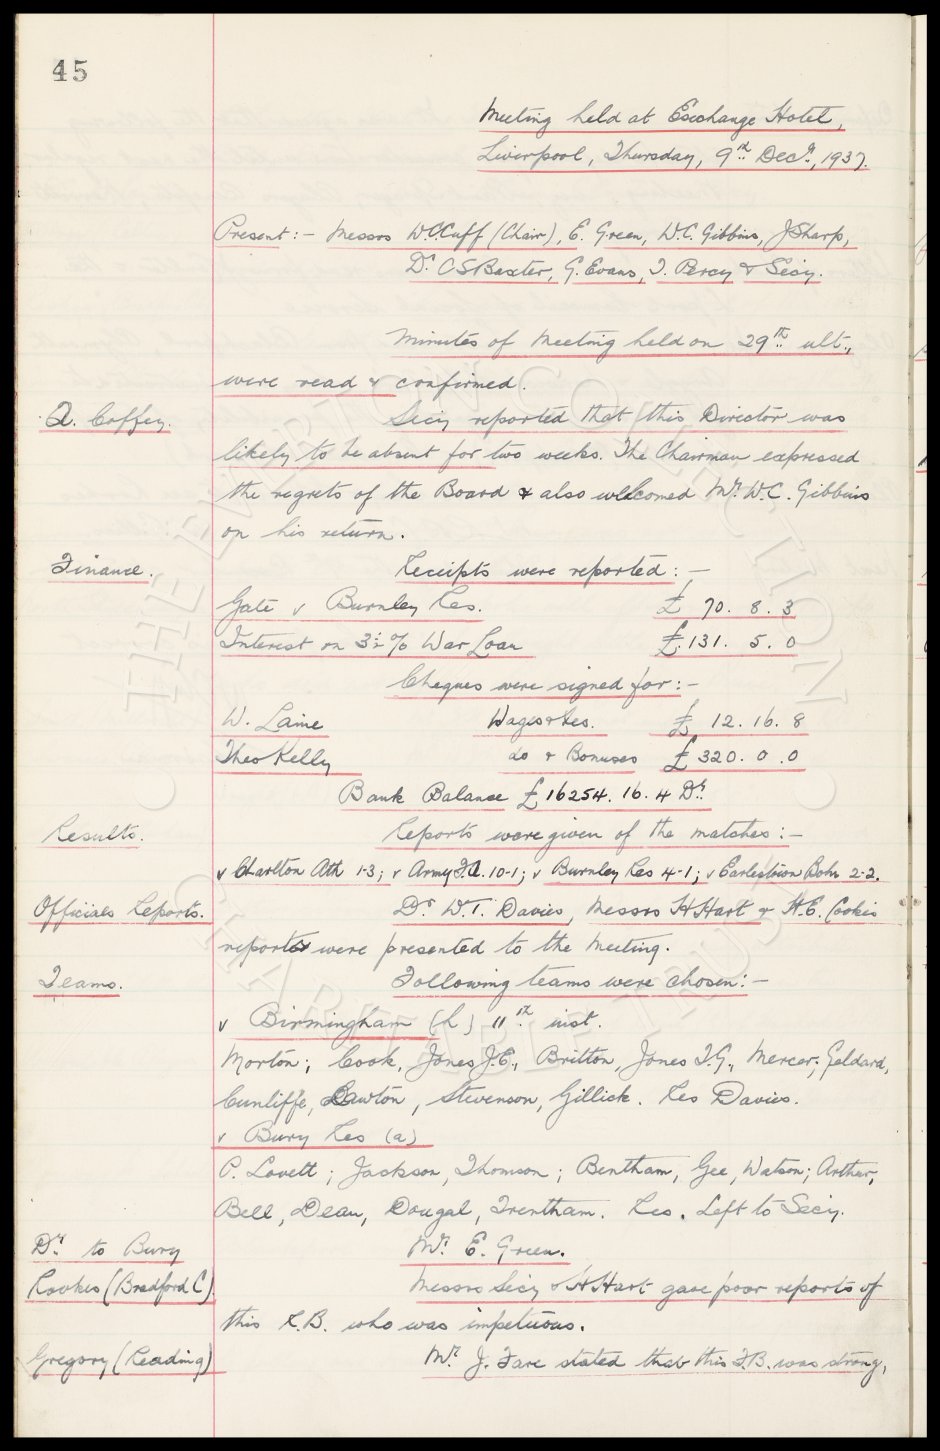 45
Meeting held at Exchange Hotel,
Liverpool, Thursday, 9th Decr., 1937.
Present:- Messrs W.C.Cuff (Chair), E. Green, W.C. Gibbins, J Sharp,
Dr. C S Baxter, G. Evans, T. Percy & Secy.
Minutes of Meeting held on 29th ult.,
were read & confirmed.
A. Coffey. Secy reported that this Director was
likely to be absent for two weeks. The Chairman expressed
the regrets of the Board & also welcomed Mr. W.C. Gibbins
on his return.
Finance. Receipts were reported:-
Gate v Burnley Res. £ 70. 8. 3
Interest on 3½% War Loan £.131. 5. 0
Cheques were signed for:-
W. Laine Wages Res. £ 12. 16. 8
Theo Kelly do & Bonuses £ 320. 0. 0
Bank Balance £ 16254. 16. 4 Dr.
Results. Reports were given of the matches:-
v Charlton Ath 1-3; v Army F.A. 10-1; v Burnley Res 4-1; v Earlestown Bohs 2-2.
Officials Reports. Dr. W.T. Davies, Messrs H Hart & H.E. Cookes
reports were presented to the Meeting.
Teams. Following teams were chosen:-
v Birmingham (h) 11th inst.
Morton; Cook, Jones J.E., Britton, Jones T.G., Mercer; Geldard,
Cunliffe, Lawton, Stevenson, Gillick. Res Davies.
v Bury Res (a)
P. Lovett; Jackson, Thomson; Bentham, Gee, Watson; Arthur,
Bell, Dean, Dougal, Trentham. Res. Left to Secy.
Dr. to Bury Mr. E. Green.
Rookes (Bradford C). Messrs Secy & H Hart gave poor reports of
this R.B. who was impetuous.
Gregory (Reading) Mr. J. Fare stated that this F.B. was strong,
THE EVERTON COLLECTION
CHARITABLE TRUST